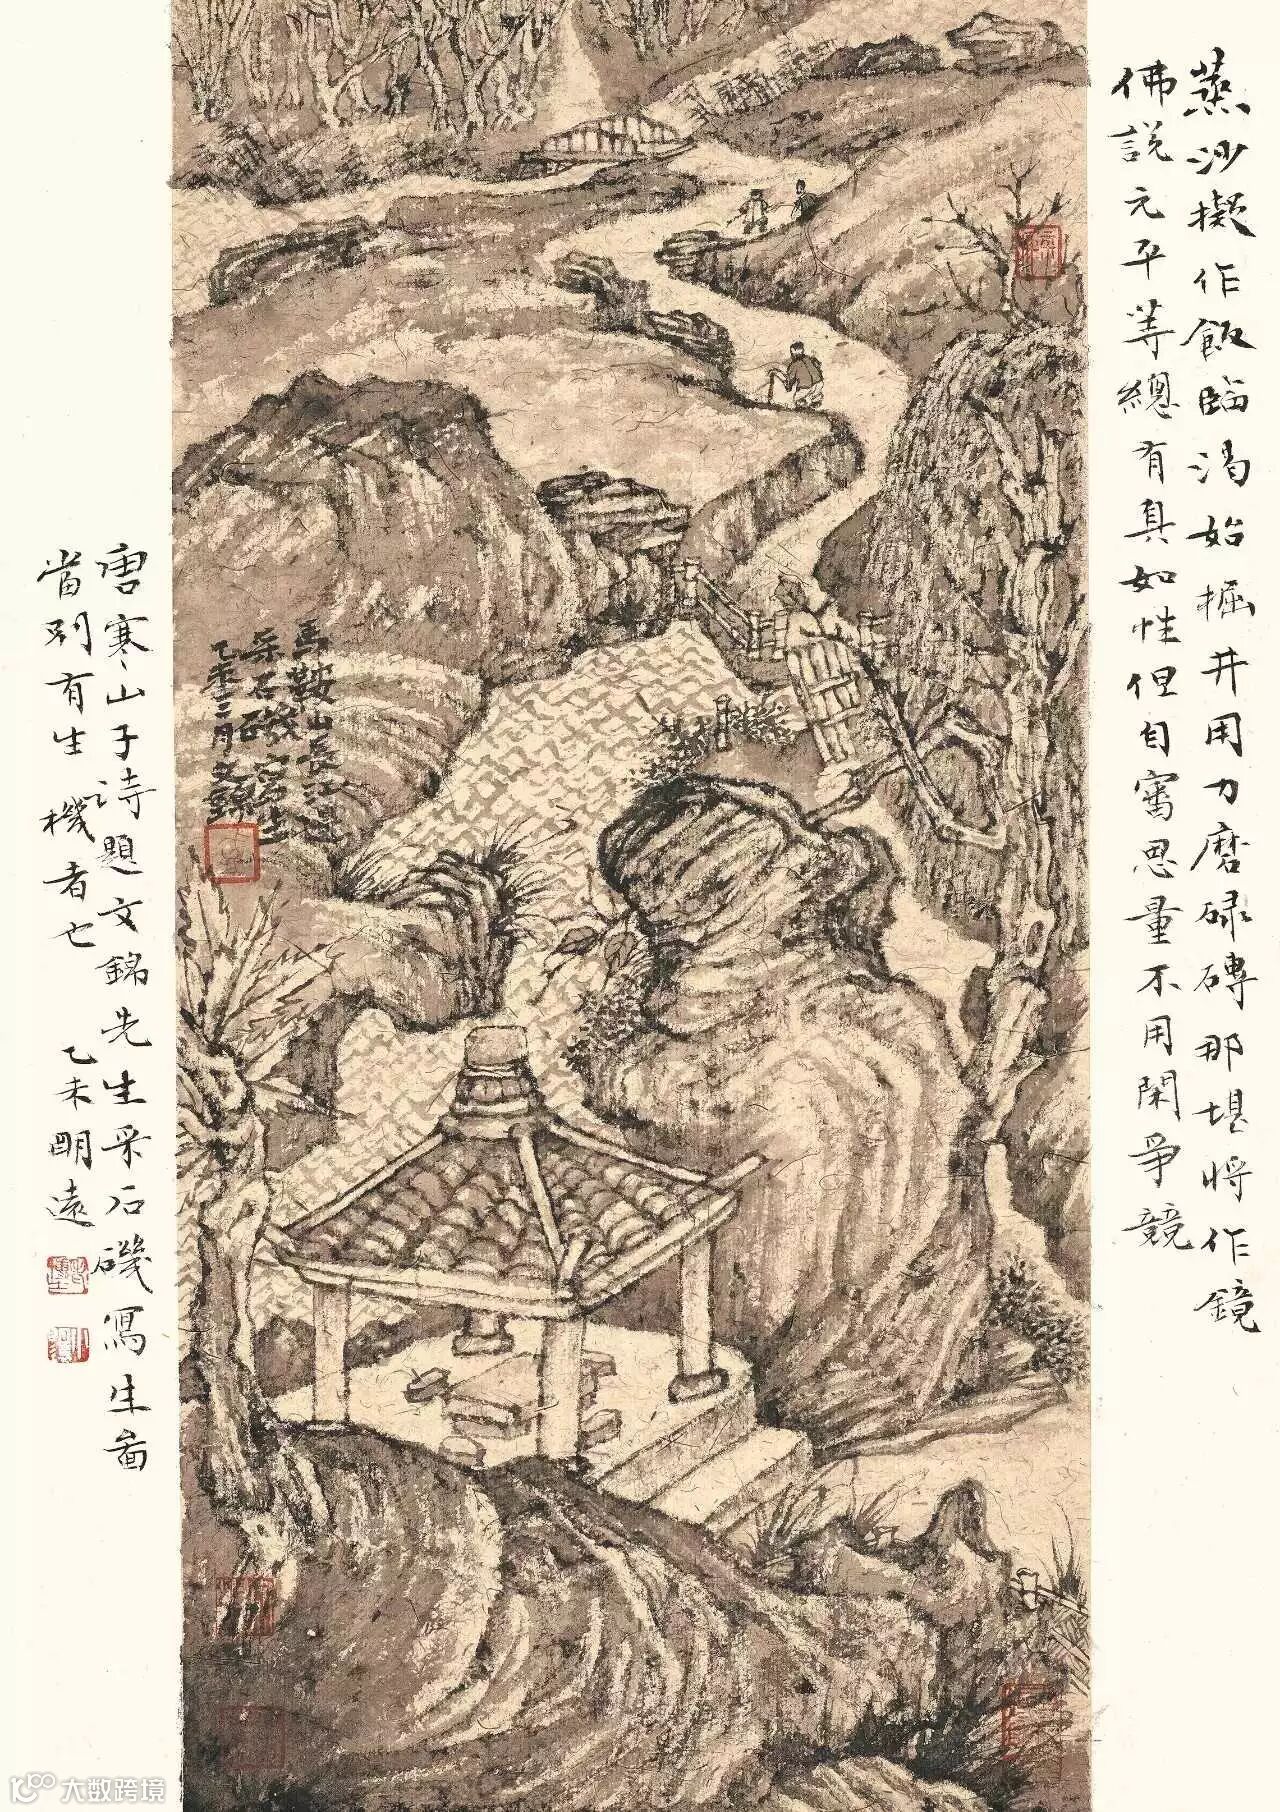 蒸沙擬作飯臨渴始掘井用力磨碌磚那堪將作鏡
佛說元平等總有真如性但自審思量不用閑爭競
馬鞍山長江邊
采石磯寫生
乙未三月文錦
唐寒山子詩題文錦先生采石磯寫生畫
當別有生機者也
乙未明遠
大数跨境